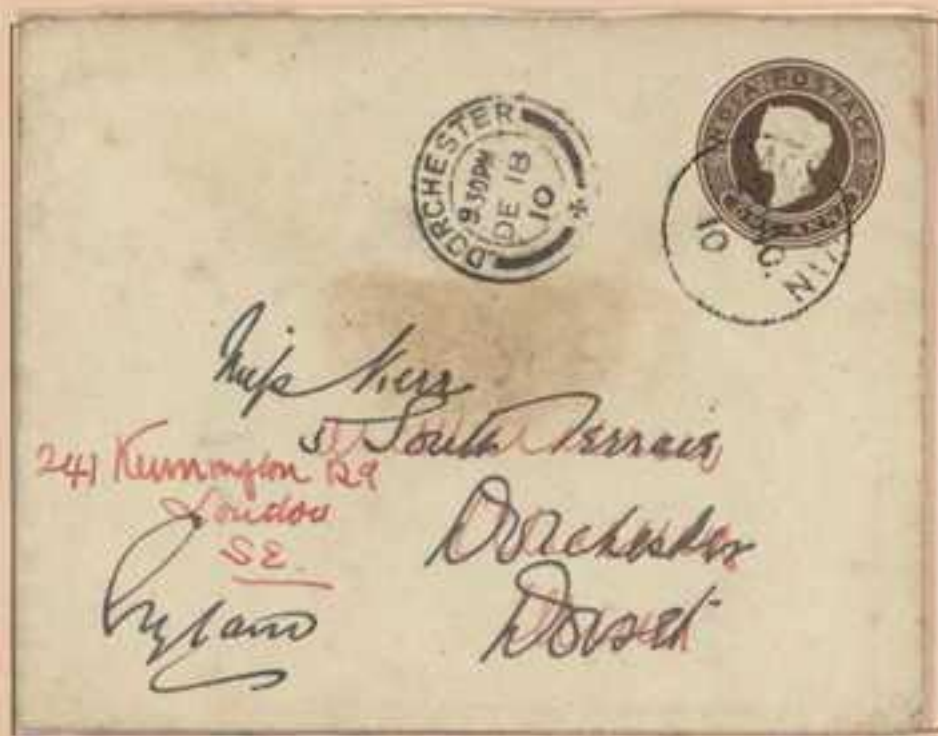 DORCHESTER
9.30PM
DE 18
10
INDIA POSTAGE
ONE ANNA
10
Miss Kerr
5 South Terrace
Dorchester
Dorset
England
241 Kennington Rd
London
SE